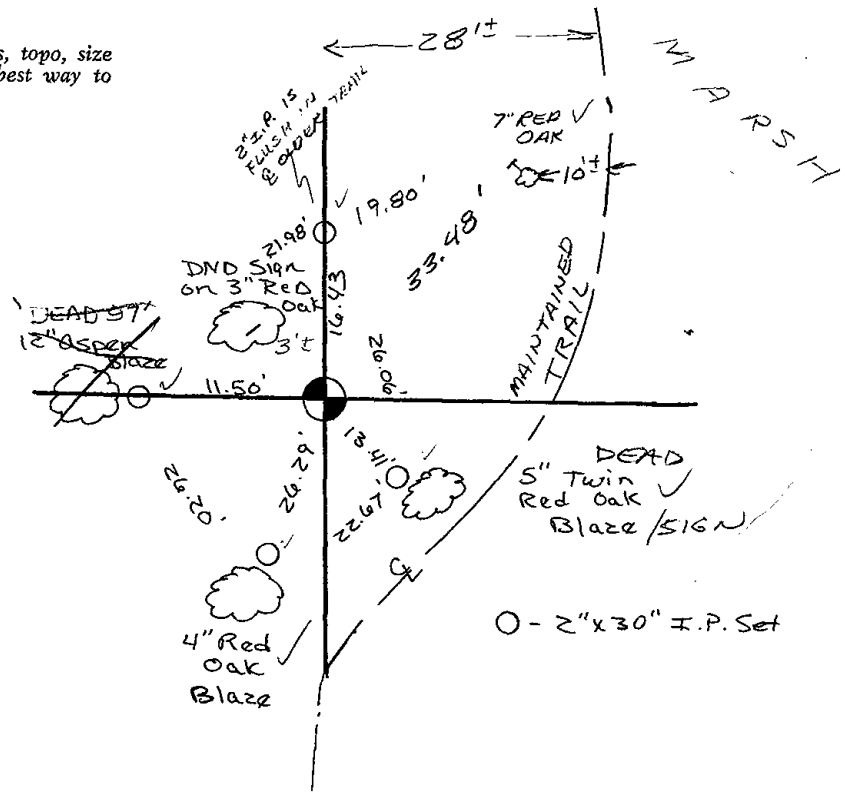 s, topo, size
best way to
28'±
MARSH
2" I.P. IS
FLUSH IN
℄ OLDER TRAIL
7" RED
OAK
10'±
19.80'
21.98'
33.48'
DND Sign
on 3" Red
Oak
3'±
16.43
26.06'
MAINTAINED
TRAIL
12" Aspen
Blaze
11.50'
13.41'
26.29'
26.20'
22.67'
DEAD
5" Twin
Red Oak
Blaze/SIGN
℄
4" Red
Oak
Blaze
O - 2"x30" I.P. Set